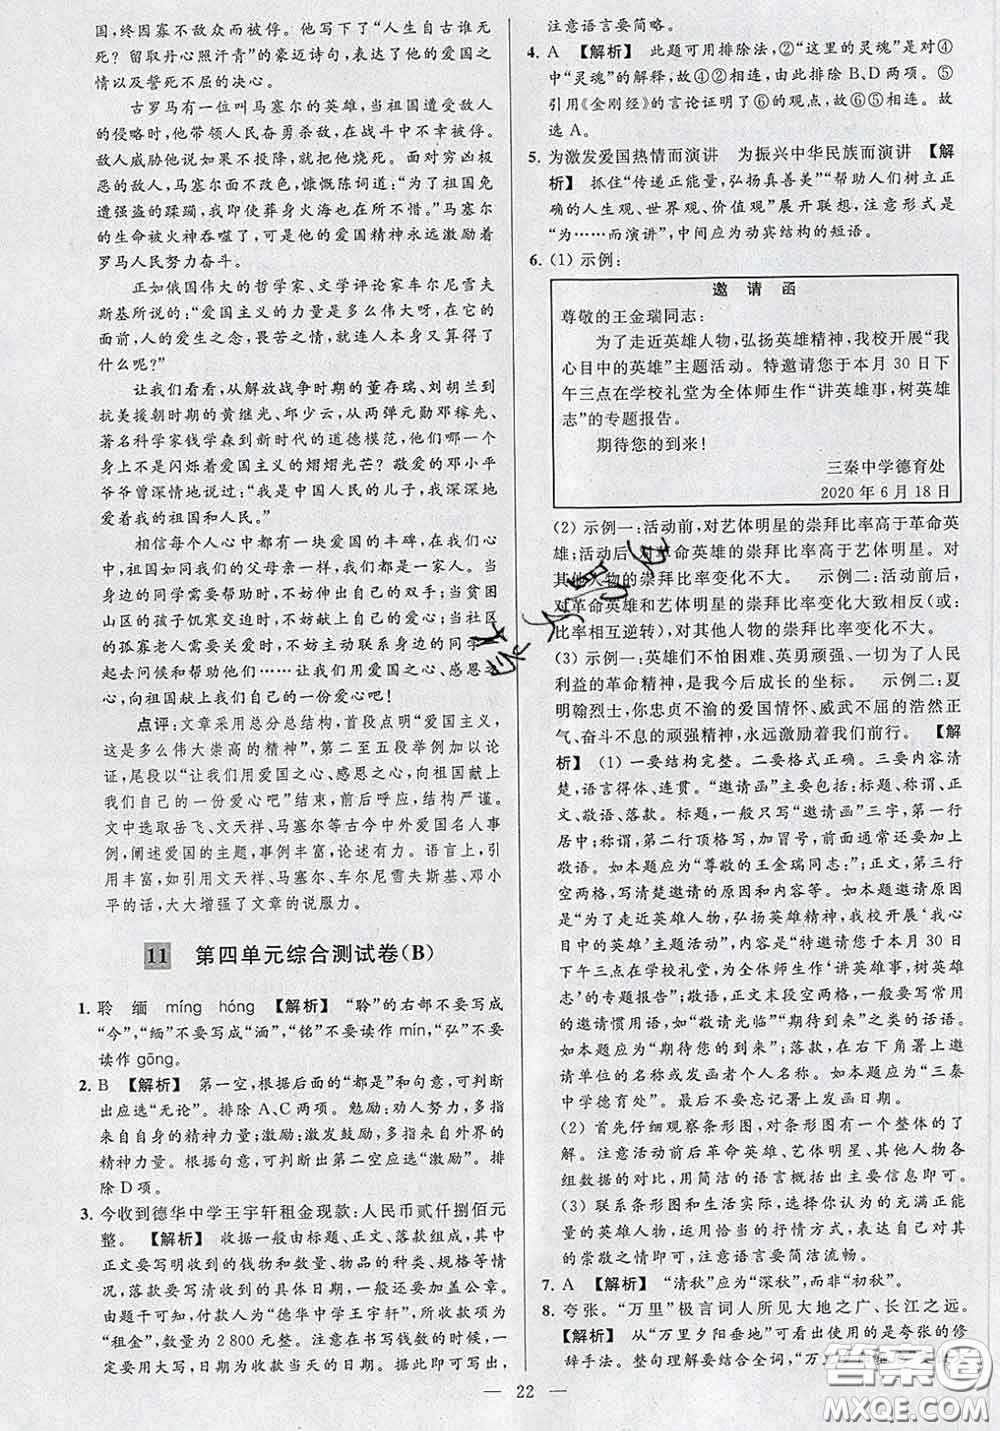 国,终因寡不敌众而被俘。他写下了“人生自古谁无
死?留取丹心照汗青”的豪迈诗句,表达了他的爱国之
情以及誓死不屈的决心。
古罗马有一位叫马塞尔的英雄,当祖国遭受敌人
的侵略时,他带领人民奋勇杀敌,在战斗中不幸被停。
敌人威胁他说如果不投降,就把他烧死。面对穷凶极
恶的敌人,马塞尔面不改色,慷慨陈词道:“为了祖国免
遭强盗的蹂躏,我即使葬身火海也在所不惜。”马塞尔
的生命被火神吞噬了,可是他的爱国精神永远激励着
罗马人民努力奋斗。
正如俄国伟大的哲学家、文学评论家车尔尼雪夫
斯基所说的:“爱国主义的力量是多么伟大呀,在它的
面前,人的爱生之念,畏苦之情,就连人本身又算得了
什么呢?”
让我们看看,从解放战争时期的董存瑞、刘胡兰到
抗美援朝时期的黄继光、邱少云,从两弹元勋邓稼先、
著名科学家钱学森到新时代的道德模范,他们哪一个
身上不是闪烁着爱国主义的熠熠光芒?敬爱的邓小平
爷爷曾深情地说过:“我是中国人民的儿子,我深深地
爱着我的祖国和人民。”
相信每个人心中都有一块爱国的丰碑,在我们心
中,祖国如同我们的父母亲一样,我们都是祖国的孩子。
当身边的同学需要帮助时,不妨伸出自己的双手;当贫困
山区的孩子饥寒交迫时,不妨献出自己的爱心;当社区
的孤寡老人需要关爱时,不妨主动联系身边的同学一
起去问候和帮助他们……让我们用爱国之心、感恩之
心,向祖国献上我们自己的一份爱心吧!
点评:文章采用总分总结构,首段点明“爱国主义,
这是多么伟大崇高的精神”,第二至五段举例加以论
证,尾段以“让我们用爱国之心、感恩之心,向祖国献上
我们自己的一份爱心吧”结束,前后呼应,结构严谨。
文中选取岳飞、文天祥、马塞尔等古今中外爱国名人事
例,阐述爱国的主题,事例丰富,论述有力。语言上,引
用丰富,如引用文天祥、马塞尔、车尔尼雪夫斯基、邓小
平的话,大大增强了文章的说服力。
11 第四单元综合测试卷(B)
1. 聆 缅 míng hóng 【解析】 “聆”的右部不要写成
“今”,“缅”不要写成“湎”,“铭”不要读作 mín,“弘”不要
读作 gōng。
2. B 【解析】 第一空,根据后面的“都是”和句意,可判断
出应选“无论”。排除A、C两项。勉励:劝人努力,更多
来自自身的精神力量;激励:激发鼓励,多来自外界的
精神力量。根据句意,可判断出第二空应选“激励”。排
除D项。
3. 今收到德华中学王宇轩租金现款:人民币贰仟捌佰元
整。 【解析】 收据一般由标题、正文、落款组成,其中
正文要写明收到的钱物和数量、物品的种类、规格等情况,
落款要写清楚收到的具体日期,一般还要加盖公章。
由题干可知,付款人为“德华中学王宇轩”,所收款项为
“租金”,数量为2800元整。注意在书写钱数的时候,一
定要用大写,日期为收款当天的日期。据此即可写出,
注意语言要简略。
4. A 【解析】 此题可用排除法,②“这里的灵魂”是对④
中“灵魂”的解释,故④②相连,由此排除B、D两项。⑤
引用《金刚经》的言论证明了⑥的观点,故⑥⑤相连。故
选A。
5. 为激发爱国热情而演讲 为振兴中华民族而演讲 【解
析】 抓住“传递正能量,弘扬真善美”“帮助人们树立正确
的人生观、世界观、价值观”展开联想,注意形式是
“为……而演讲”,中间应为动宾结构的短语。
6. (1) 示例:
邀 请 函
尊敬的王金瑞同志:
为了走近英雄人物,弘扬英雄精神,我校开展“我
心目中的英雄”主题活动。特邀请您于本月30日下
午三点在学校礼堂为全体师生作“讲英雄事,树英雄
志”的专题报告。
期待您的到来!
三秦中学德育处
2020年6月18日
(2) 示例一:活动前,对艺体明星的崇拜比率高于革命英
雄;活动后,对革命英雄的崇拜比率高于艺体明星。对
其他人物的崇拜比率变化不大。 示例二:活动前后,
对革命英雄和艺体明星的崇拜比率变化大致相反(或:
比率相互逆转),对其他人物的崇拜比率变化不大。
(3) 示例一:英雄们不怕困难、英勇顽强、一切为了人民
利益的革命精神,是我今后成长的坐标。 示例二:夏
明翰烈士,你忠贞不渝的爱国情怀、威武不屈的浩然正
气、奋斗不息的顽强精神,永远激励着我们前行。 【解
析】 (1) 一要结构完整。二要格式正确。三要内容清
楚,语言得体、连贯。“邀请函”主要包括:标题、称谓、正
文、敬语、落款。标题,一般只写“邀请函”三字,第一行
居中;称谓,第二行顶格写,加冒号,前面通常还要加上
敬语。如本题应为“尊敬的王金瑞同志:”;正文,第三行
空两格,写清楚邀请的原因和内容等。如本题邀请原因
是“为了走近英雄人物,弘扬英雄精神,我校开展‘我心
目中的英雄’主题活动”,内容是“特邀请您于本月30日
下午三点在学校礼堂为全体师生作‘讲英雄事,树英雄
志’的专题报告”;敬语,正文末段空两格,一般要写常用
的邀请惯用语,如“敬请光临”“期待到来”之类的话语。
如本题应为“期待您的到来!”;落款,在右下角署上邀
请单位的名称或发函者个人姓名。如本题应为“三秦
中学德育处”。最后不要忘记署上发函日期。
(2) 首先仔细观察条形图,对条形图有一个整体的感
知。注意活动前后革命英雄、艺体明星、其他人物各
组数据的对比,用简洁的语言概括出主要信息即可。
(3) 联系条形图和生活实际,选择你认为的充满正能
量的英雄人物,运用恰当的抒情方式,表达自己对他
的崇敬之情即可,注意语言要简洁流畅。
7. A 【解析】 “清秋”应为“深秋”,而非“初秋”。
8. 夸张。“万里”极言词人所见大地之广、长江之远。
【解析】 从“万里夕阳垂地”可看出使用的是夸张的修
辞手法。整句理解要结合全词,
22
答案圈
MXQE.COM